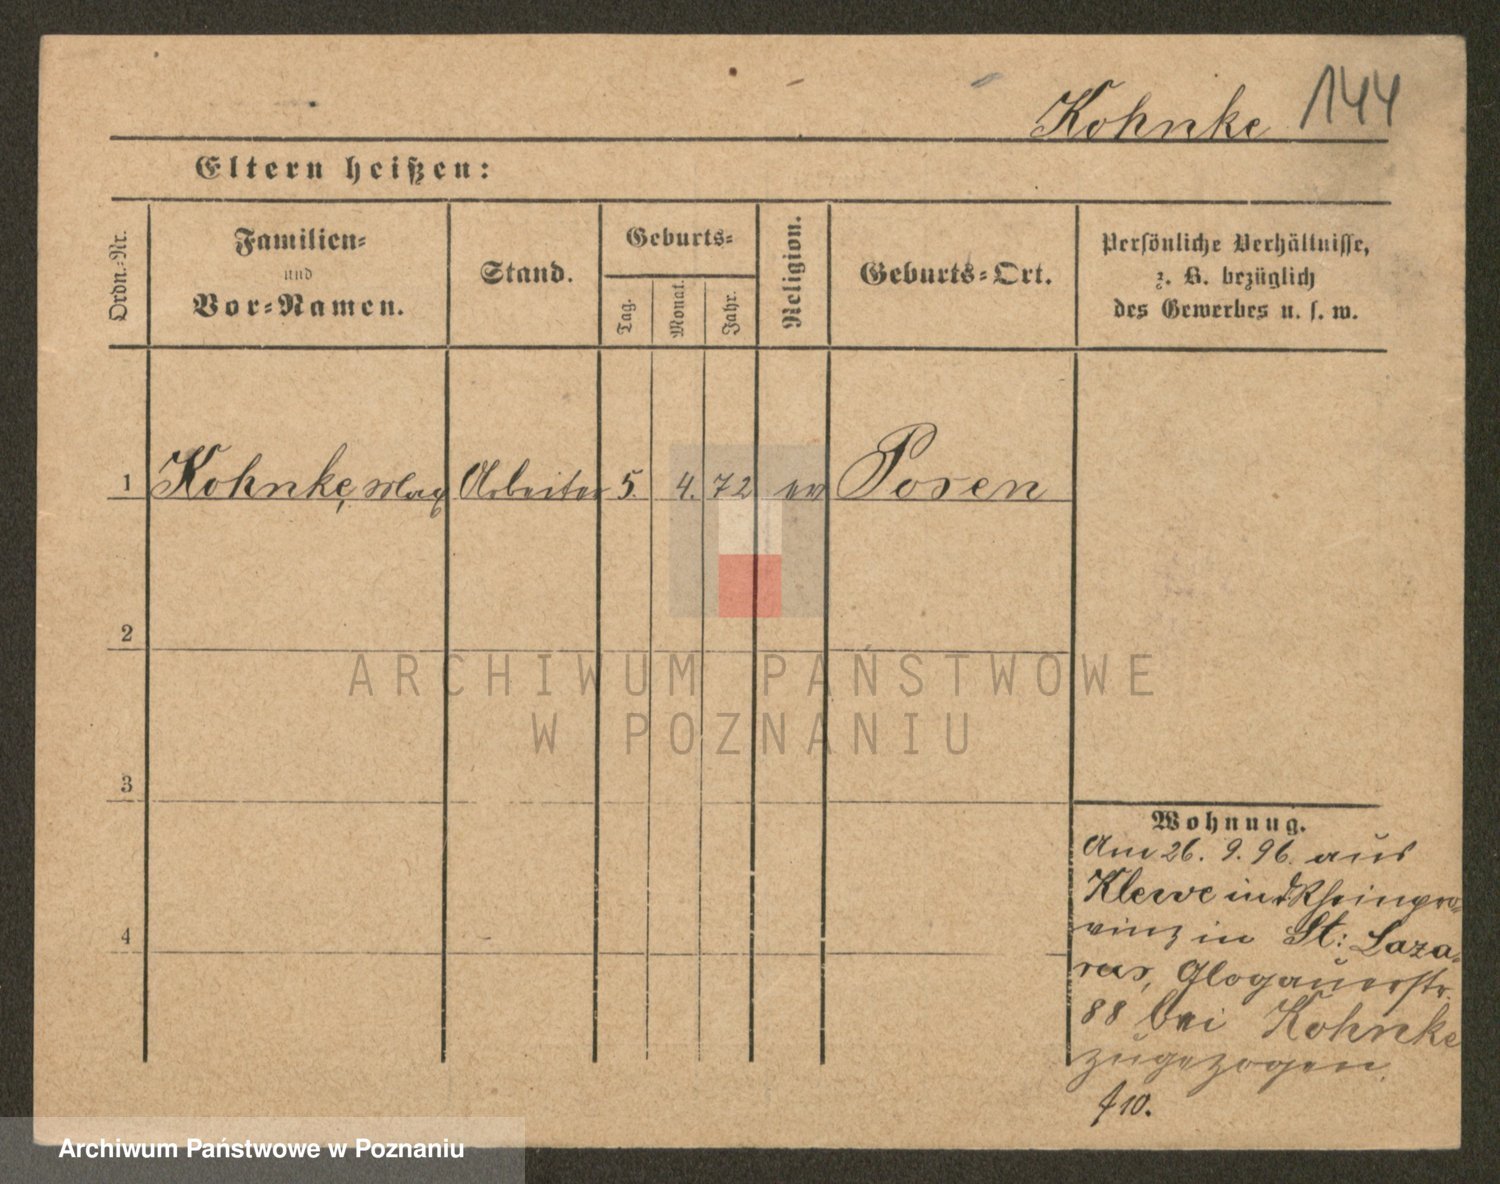 Kohnke 144
Eltern heißen:
Ordn.-Nr.
Familien-
und
Vor-Namen.
Stand.
Geburts-
Tag.
Monat.
Jahr.
Religion.
Geburts-Ort.
Persönliche Verhältnisse,
z. B. bezüglich
des Gewerbes u. s. w.
1 Kohnke, Max Arbeiter 5. 4. 72 ev Posen
2
3
4
Wohnung.
Am 26. 9. 96. aus
Klewe in d Rheinpro-
vinz in St: Laza-
rus, Glogauerstr.
88 bei Kohnke
zugezogen.
10.
ARCHIWUM PAŃSTWOWE
W POZNANIU
Archiwum Państwowe w Poznaniu